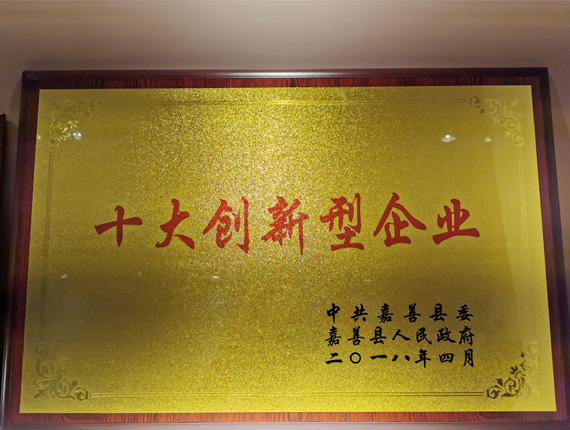 十大创新型企业
中共嘉善县委
嘉善县人民政府
二〇一八年四月